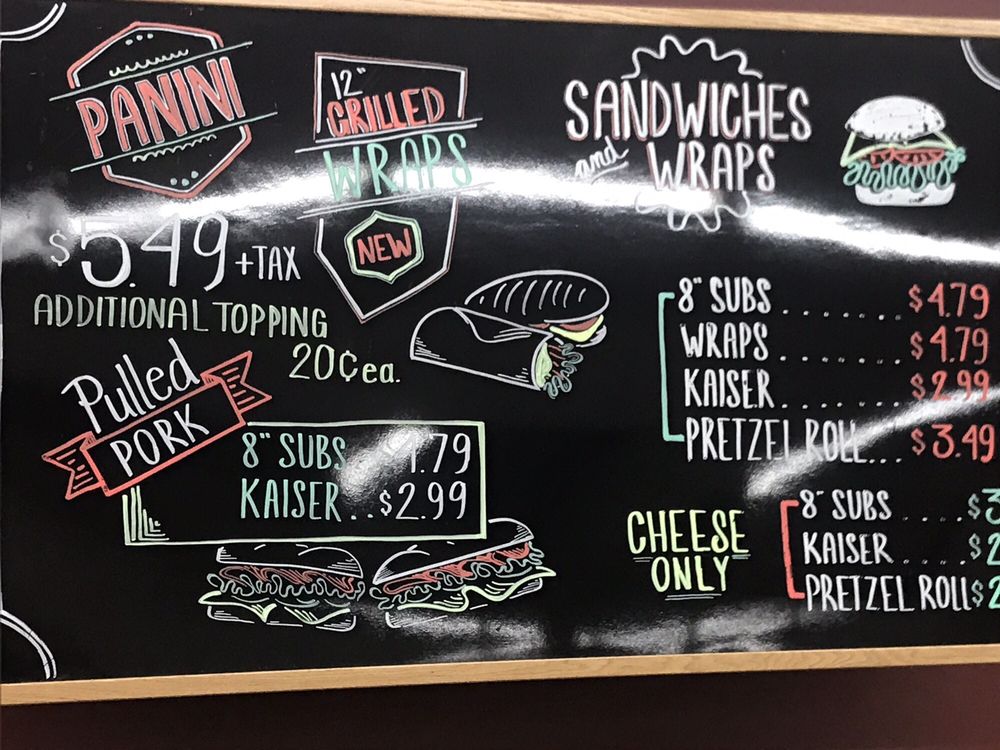 PANINI
12"
GRILLED
WRAPS
NEW
$5.49 +TAX
ADDITIONAL TOPPING
20¢ ea.
Pulled
PORK
8" SUBS .79
KAISER..$2.99
SANDWICHES
and WRAPS
8" SUBS ....... $4.79
WRAPS ....... $4.79
KAISER ....... $2.99
PRETZEL ROLL... $3.49
CHEESE
ONLY
8" SUBS .... $3
KAISER .... $2
PRETZEL ROLL $2